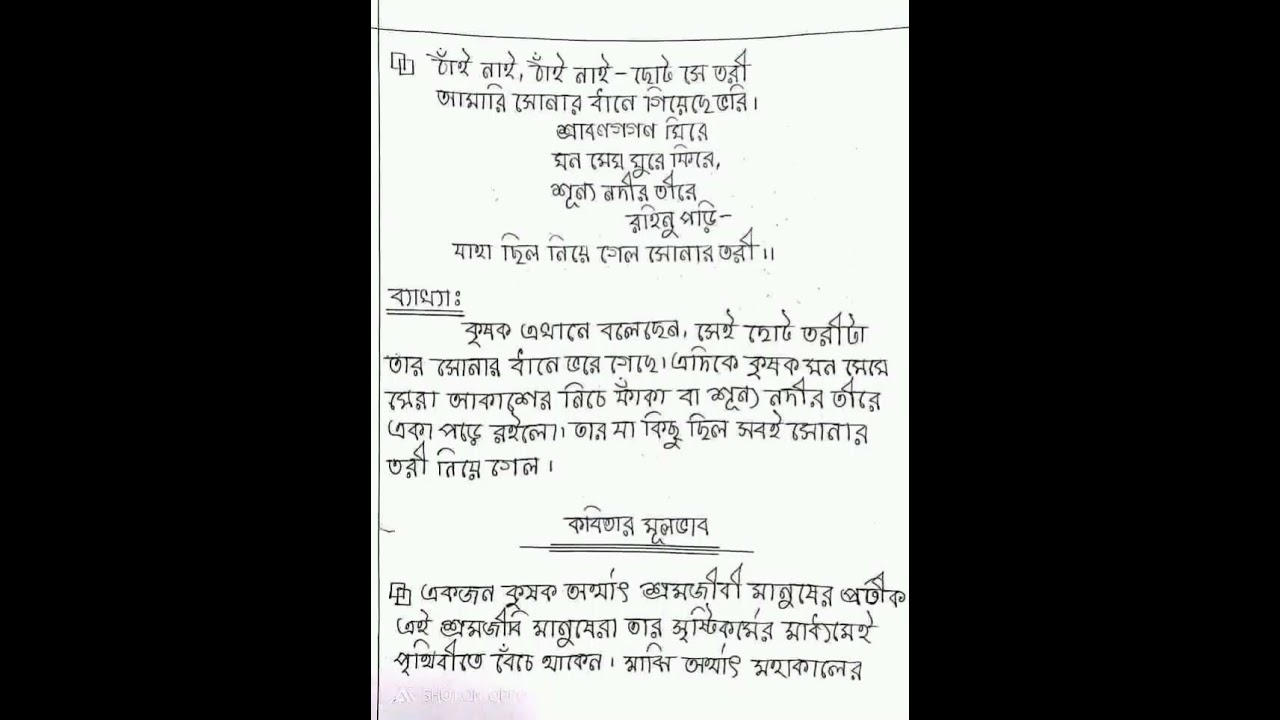 ঠাঁই নাই, ঠাঁই নাই - ছোট সে তরী
আমারি সোনার ধানে গিয়েছে ভরি।
শ্রাবণগগন ঘিরে
ঘন মেঘ ঘুরে ফিরে,
শূন্য নদীর তীরে
রহিনু পড়ি-
যাহা ছিল নিয়ে গেল সোনার তরী।।
ব্যাখ্যাঃ
কৃষক এখানে বলেছেন, সেই ছোট তরীটা
তার সোনার ধানে ভরে গেছে। এদিকে কৃষক ঘন মেঘে
ঘেরা আকাশের নিচে ফাঁকা বা শূন্য নদীর তীরে
একা পড়ে রইলো। তার যা কিছু ছিল সবই সোনার
তরী নিয়ে গেল।
কবিতার মূলভাব
একজন কৃষক অর্থাৎ শ্রমজীবী মানুষের প্রতীক
এই শ্রমজীবি মানুষেরা তার সৃষ্টিকর্মের মাধ্যমেই
পৃথিবীতে বেঁচে থাকেন। মাঝি অর্থাৎ মহাকালের
SHOT ON OPPO